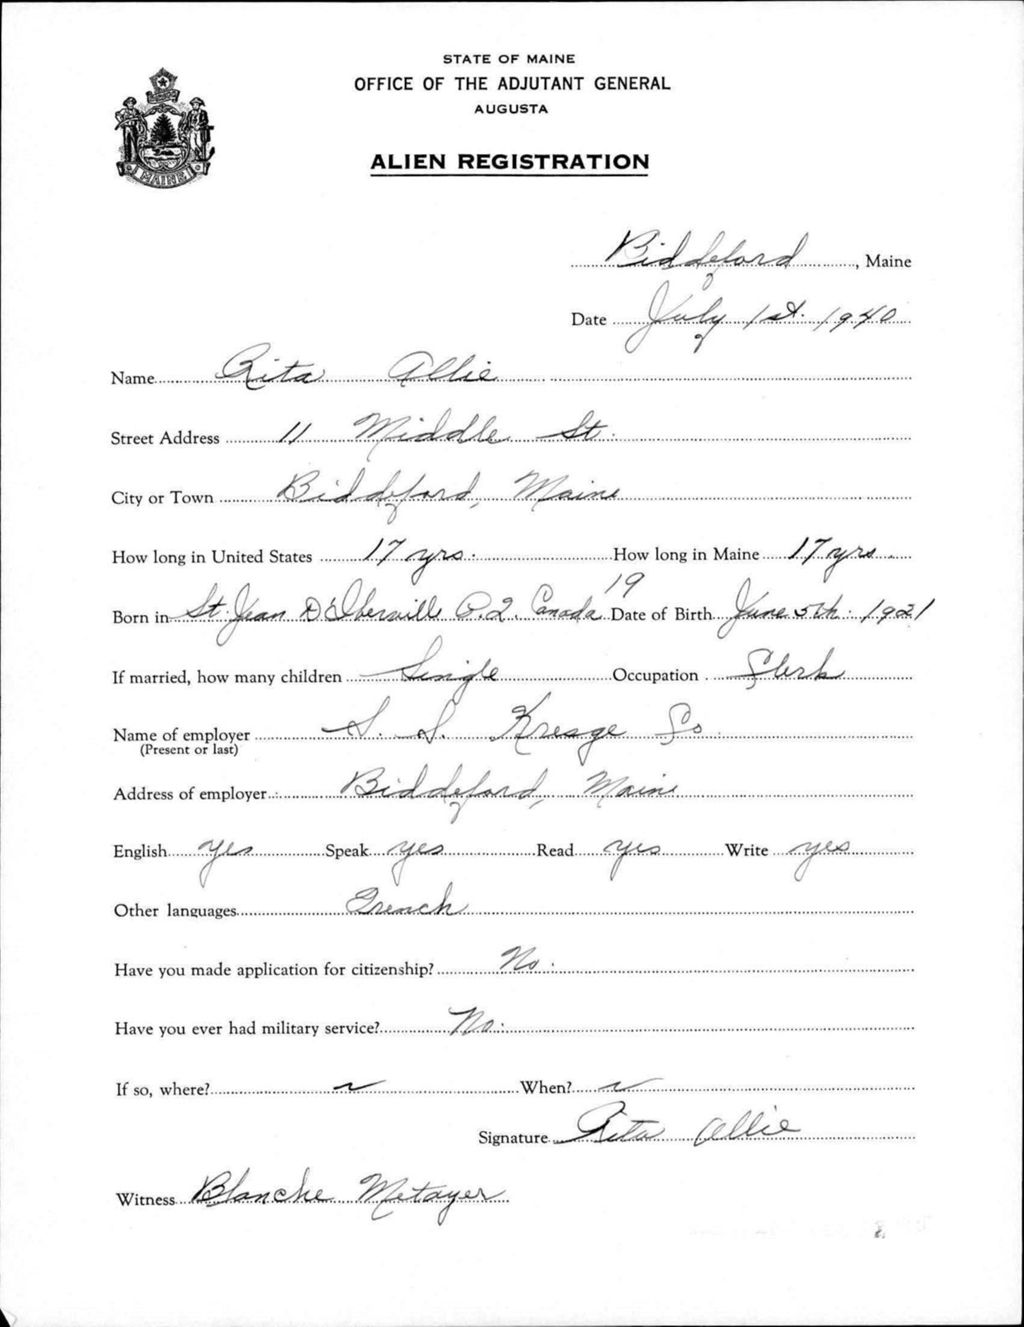 STATE OF MAINE
OFFICE OF THE ADJUTANT GENERAL
AUGUSTA
ALIEN REGISTRATION
MAINE
Biddeford, Maine
Date July 1st. 1940
Name Rita Allie
Street Address 11 Middle St.
City or Town Biddeford, Maine
How long in United States 17 yrs. How long in Maine 17 yrs
19
Born in St. Jean D'Iberville P.Q. Canada Date of Birth June 5th. 1921
If married, how many children Single Occupation Clerk
Name of employer S. S. Kresge Co
(Present or last)
Address of employer Biddeford, Maine
English yes Speak yes Read yes Write yes
Other languages French
Have you made application for citizenship? No.
Have you ever had military service? No.
If so, where? When?
Signature Rita Allie
Witness Blanche Metayer